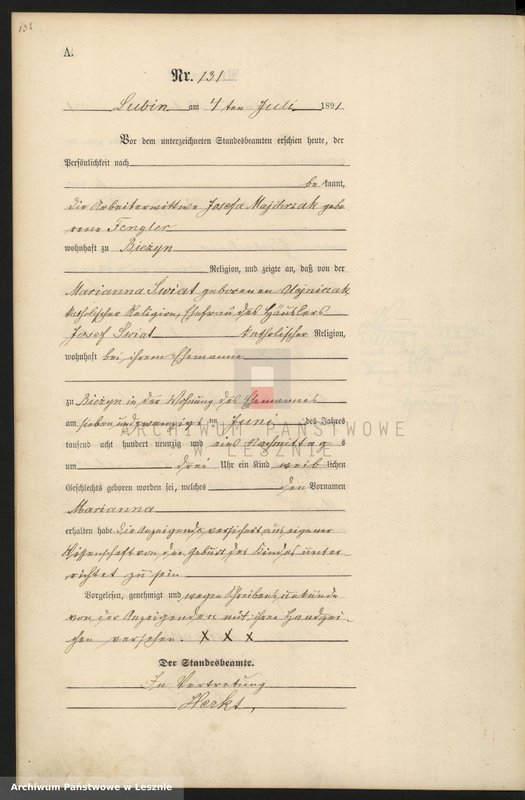 131
A.
Nr. 131
Lubin am 4 ten Juli 1891
Vor dem unterzeichneten Standesbeamten erschien heute, der
Persönlichkeit nach
be kannt,
die Arbeiterwittwe Josefa Majchrzak gebo
rene Fengler
wohnhaft zu Bieżyn
Religion, und zeigte an, daß von der
Marianna Swiat geborenen
katholischer Religion, Ehefrau des Häuslers
Josef Swiat katholischer Religion,
wohnhaft bei ihrem Ehemanne
zu Bieżyn in der Wohnung des Ehemannes
am sieben und zwanzigsten Juni des Jahres
tausend acht hundert neunzig und eins Nachmittag s
um drei Uhr ein Kind weib lichen
Geschlechts geboren worden sei, welches den Vornamen
Marianna
erhalten habe die Anzeigende versichert aus eigener
Wissenschaft von der Geburt des Kindes unter-
richtet zu sein
Vorgelesen, genehmigt und wegen Schreibensunkunde
von der Anzeigenden mit ihren Handzei-
chen versehen. X X X
Der Standesbeamte.
In Vertretung
Werkt,
ARCHIWUM PAŃSTWOWE
W LESZNIE
Archiwum Państwowe w Lesznie